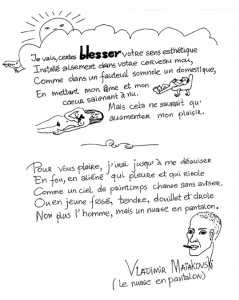 Je vais, certes blesser votre sens esthétique
Installé aisément dans votre cerveau mou,
Comme dans un fauteuil somnole un domestique,
En mettant mon âme et mon
coeur saignant à nu.
Mais cela ne saurait qu'
augmenter mon plaisir.
Pour vous plaire, j'irai jusqu'à me déguiser
En fou, en aliéné qui pleure et qui rigole
Comme un ciel de printemps change sans aviser.
Ou en jeune fessé, tendre, douillet et drole
Non plus l'homme, mais un nuage en pantalon.
VLADIMIR MAIAKOVSKI
(Le nuage en pantalon)